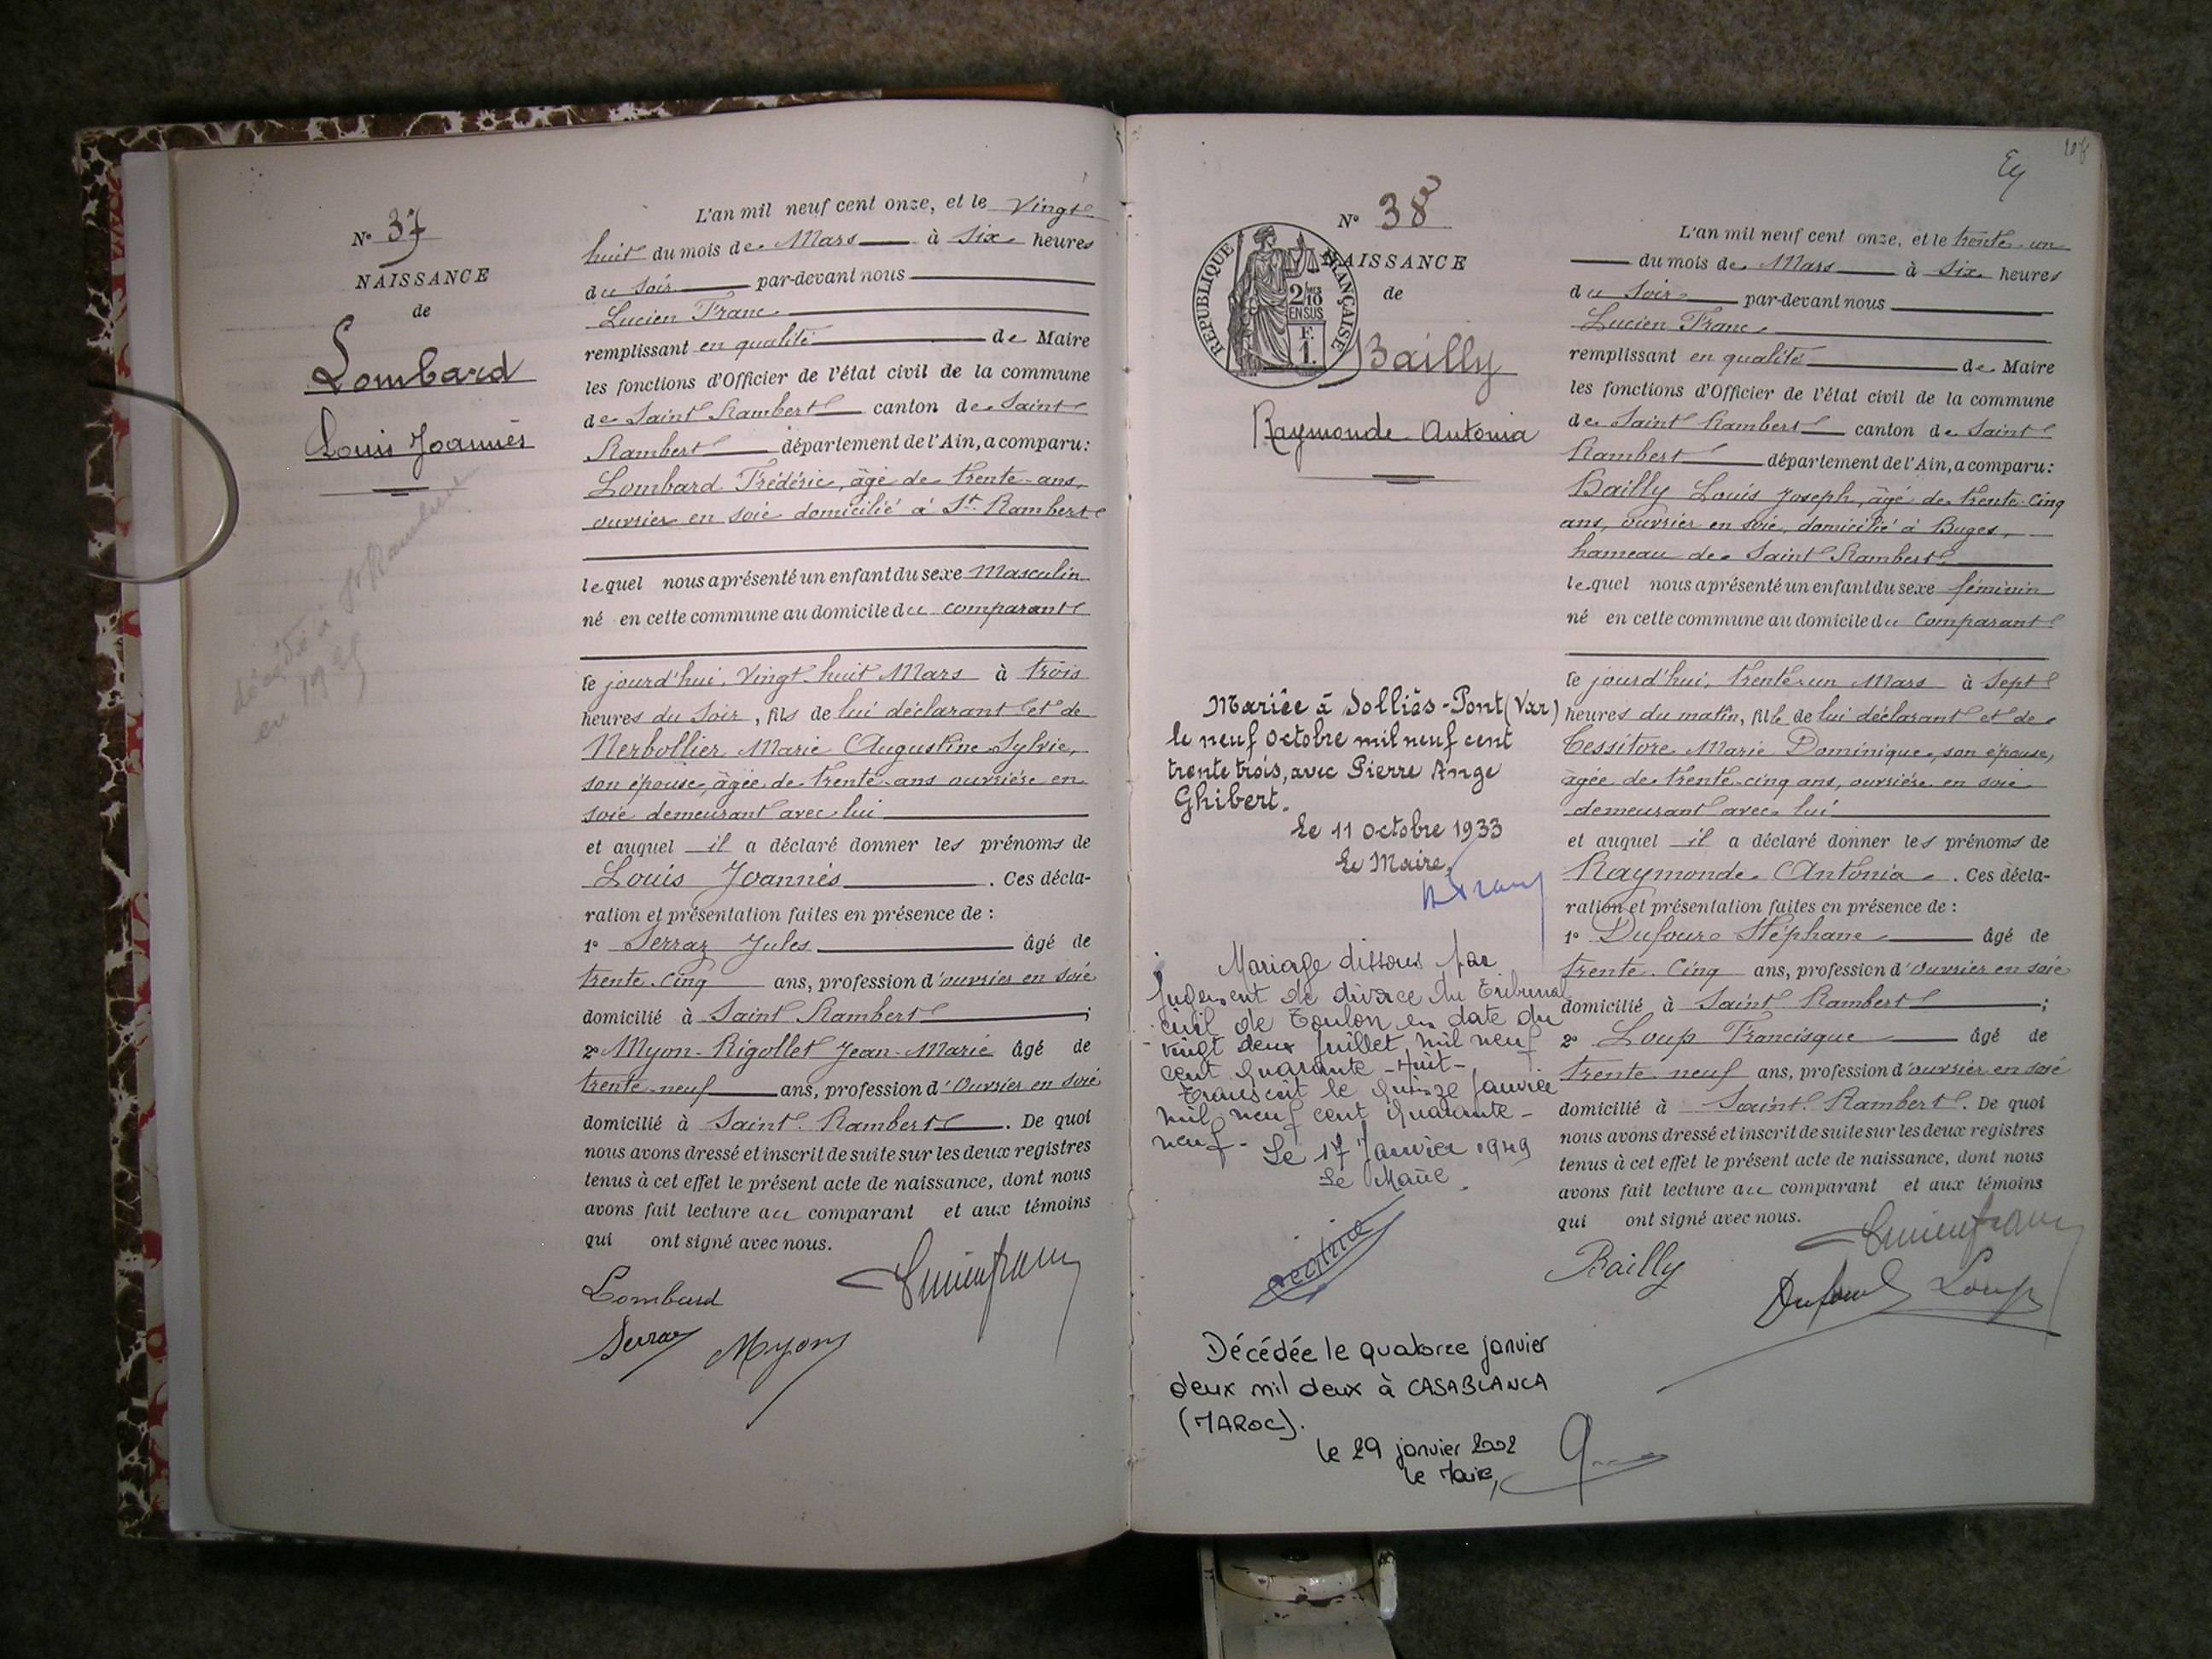 N° 37
NAISSANCE
de
Lombard
Louis Joannès
décédé à St Rambert
en 19
L'an mil neuf cent onze, et le Vingt
huit du mois de Mars à Six heures
du Soir par-devant nous
Lucien Franc
remplissant en qualité de Maire
les fonctions d'Officier de l'état civil de la commune
de Saint Rambert canton de Saint
Rambert département de l'Ain, a comparu:
Lombard Frédéric, âgé de trente-ans,
ouvrier en soie domicilié à St. Rambert
lequel nous a présenté un enfant du sexe Masculin
né en cette commune au domicile du comparant
le jourd'hui, Vingt-huit Mars à trois
heures du Soir, fils de lui déclarant et de
Nerbollier Marie Augustine Sylvie,
son épouse, âgée de trente-ans ouvrière en
soie demeurant avec lui
et auquel il a déclaré donner les prénoms de
Louis Joannès. Ces décla-
ration et présentation faites en présence de :
1° Serraz Jules âgé de
trente-Cinq ans, profession d'ouvrier en soie
domicilié à Saint Rambert ;
2° Myon-Rigollet Jean-Marie âgé de
trente-neuf ans, profession d'Ouvrier en soie
domicilié à Saint-Rambert. De quoi
nous avons dressé et inscrit de suite sur les deux registres
tenus à cet effet le présent acte de naissance, dont nous
avons fait lecture au comparant et aux témoins
qui ont signé avec nous.
Lombard
Lucien franc
Serraz
Myon
108
N° 38
RÉPUBLIQUE FRANÇAISE
2/10
EN SUS
F.
1.
NAISSANCE
de
Bailly
Raymonde Antonia
Mariée à Solliès-Pont (Var)
le neuf octobre mil neuf cent
trente trois, avec Pierre Ange
Ghibert.
Le 11 octobre 1933
Le Maire,
Mariage dissous par
Jugement de divorce du Tribunal
civil de Toulon en date du
vingt deux Juillet mil neuf
cent quarante-Huit-
Transcrit le quinze Janvier
mil neuf cent quarante-
neuf- Le 17 Janvier 1949
Le Maire
Décédée le quatorze janvier
deux mil deux à CASABLANCA
(MAROC).
le 29 janvier 2002
le Maire,
L'an mil neuf cent onze, et le trente-un
du mois de Mars à Six heures
du Soir par-devant nous
Lucien Franc
remplissant en qualité de Maire
les fonctions d'Officier de l'état civil de la commune
de Saint Rambert canton de Saint
Rambert département de l'Ain, a comparu:
Bailly Louis Joseph, âgé de trente-Cinq
ans, ouvrier en soie, domicilié à Buges,
hameau de Saint Rambert
lequel nous a présenté un enfant du sexe féminin
né en cette commune au domicile du Comparant
le jourd'hui, trente-un Mars à Sept
heures du matin, fille de lui déclarant et de
Cessitore Marie Dominique, son épouse,
âgée de trente-cinq ans, ouvrière en soie
demeurant avec lui
et auquel il a déclaré donner les prénoms de
Raymonde Antonia. Ces décla-
ration et présentation faites en présence de :
1° Dufour Stéphane âgé de
trente-Cinq ans, profession d'Ouvrier en soie
domicilié à Saint Rambert ;
2° Loup Francisque âgé de
trente neuf ans, profession d'ouvrier en soie
domicilié à Saint-Rambert. De quoi
nous avons dressé et inscrit de suite sur les deux registres
tenus à cet effet le présent acte de naissance, dont nous
avons fait lecture au comparant et aux témoins
qui ont signé avec nous.
Lucien franc
Bailly
Dufour
Loup